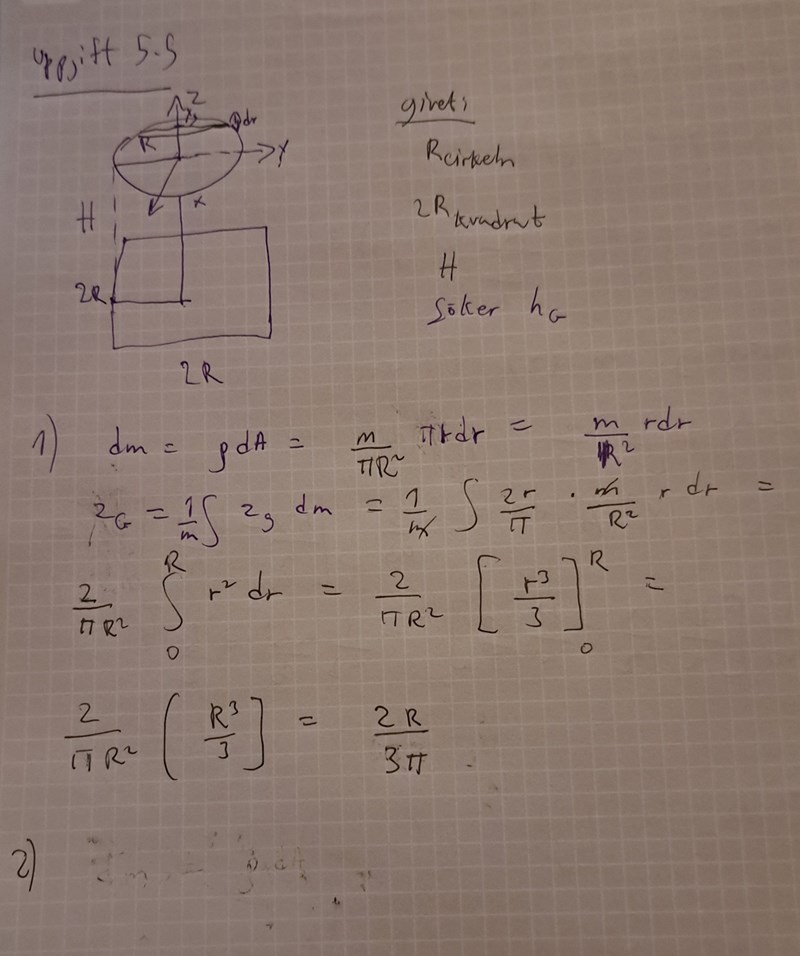 uppgift 5.5
Z
dr
R
Y
x
H
2R
2R
givet:
Rcirkeln
2Rkvadrat
H
Söker hG
1) dm = ρdA = m/πR² πrdr = m/R² rdr
zG = 1/m ∫ zg dm = 1/m ∫ 2r/π · m/R² r dr =
2/πR² ∫₀ᴿ r² dr = 2/πR² [r³/3]₀ᴿ =
2/πR² (R³/3] = 2R/3π .
2)